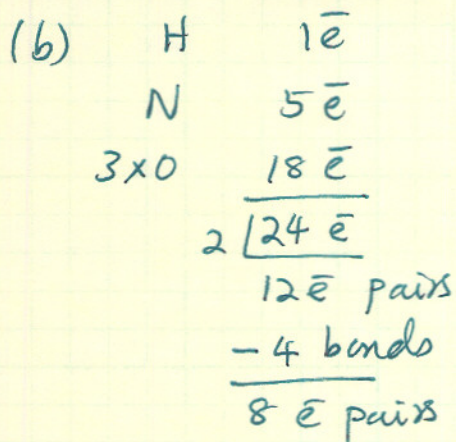 (b) H 1ē
N 5ē
3×O 18ē
2 24ē
12ē pairs
- 4 bonds
8 ē pairs